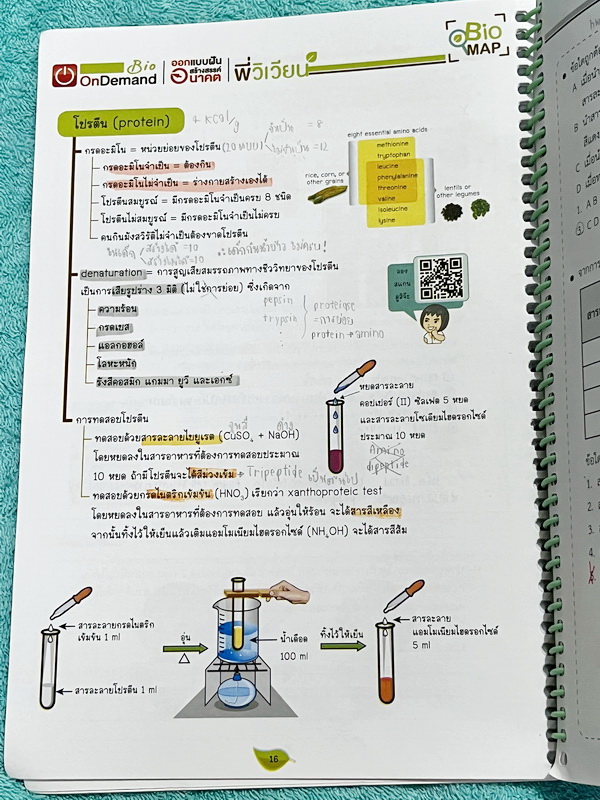 Bio
OnDemand
ออกแบบฝัน
สร้างสรรค์
อนาคต
พี่วิเวียน
Bio
MAP
โปรตีน (protein)
4 kcal/g
กรดอะมิโน = หน่วยย่อยของโปรตีน (20 แบบ)
จำเป็น = 8
ไม่จำเป็น = 12
กรดอะมิโนจำเป็น = ต้องกิน
กรดอะมิโนไม่จำเป็น = ร่างกายสร้างเองได้
โปรตีนสมบูรณ์ = มีกรดอะมิโนจำเป็นครบ 8 ชนิด
โปรตีนไม่สมบูรณ์ = มีกรดอะมิโนจำเป็นไม่ครบ
คนกินมังสวิรัติไม่จำเป็นต้องขาดโปรตีน
eight essential amino acids
methionine
tryptophan
leucine
phenylalanine
threonine
valine
isoleucine
lysine
rice, corn, or
other grains
lentils or
other legumes
denaturation = การสูญเสียสมรรถภาพทางชีววิทยาของโปรตีน
เป็นการเสียรูปร่าง 3 มิติ (ไม่ใช่การย่อย) ซึ่งเกิดจาก
ความร้อน
กรดเบส
แอลกอฮอล์
โลหะหนัก
รังสีคอสมิก แกมมา ยูวี และเอกซ์
pepsin
trypsin
protease
=การย่อย
protein→amino
ลอง
สแกน
ดูสิจ๊ะ
การทดสอบโปรตีน
ทดสอบด้วยสารละลายไบยูเรต (CuSO₄ + NaOH)
โดยหยดลงในสารอาหารที่ต้องการทดสอบประมาณ
10 หยด ถ้ามีโปรตีนจะได้สีม่วงเข้ม
Tripeptide เป็นต้นไป
หยดสารละลาย
คอปเปอร์ (II) ซัลเฟต 5 หยด
และสารละลายโซเดียมไฮดรอกไซด์
ประมาณ 10 หยด
Amino
dipeptide
ทดสอบด้วยกรดไนตริกเข้มข้น (HNO₃) เรียกว่า xanthoproteic test
โดยหยดลงในสารอาหารที่ต้องการทดสอบ แล้วอุ่นให้ร้อน จะได้สารสีเหลือง
จากนั้นทิ้งไว้ให้เย็นแล้วเติมแอมโมเนียมไฮดรอกไซด์ (NH₄OH) จะได้สารสีส้ม
สารละลายกรดไนตริก
เข้มข้น 1 ml
สารละลายโปรตีน 1 ml
อุ่น
น้ำเดือด
100 ml
ทิ้งไว้ให้เย็น
สารละลาย
แอมโมเนียมไฮดรอกไซด์
5 ml
16